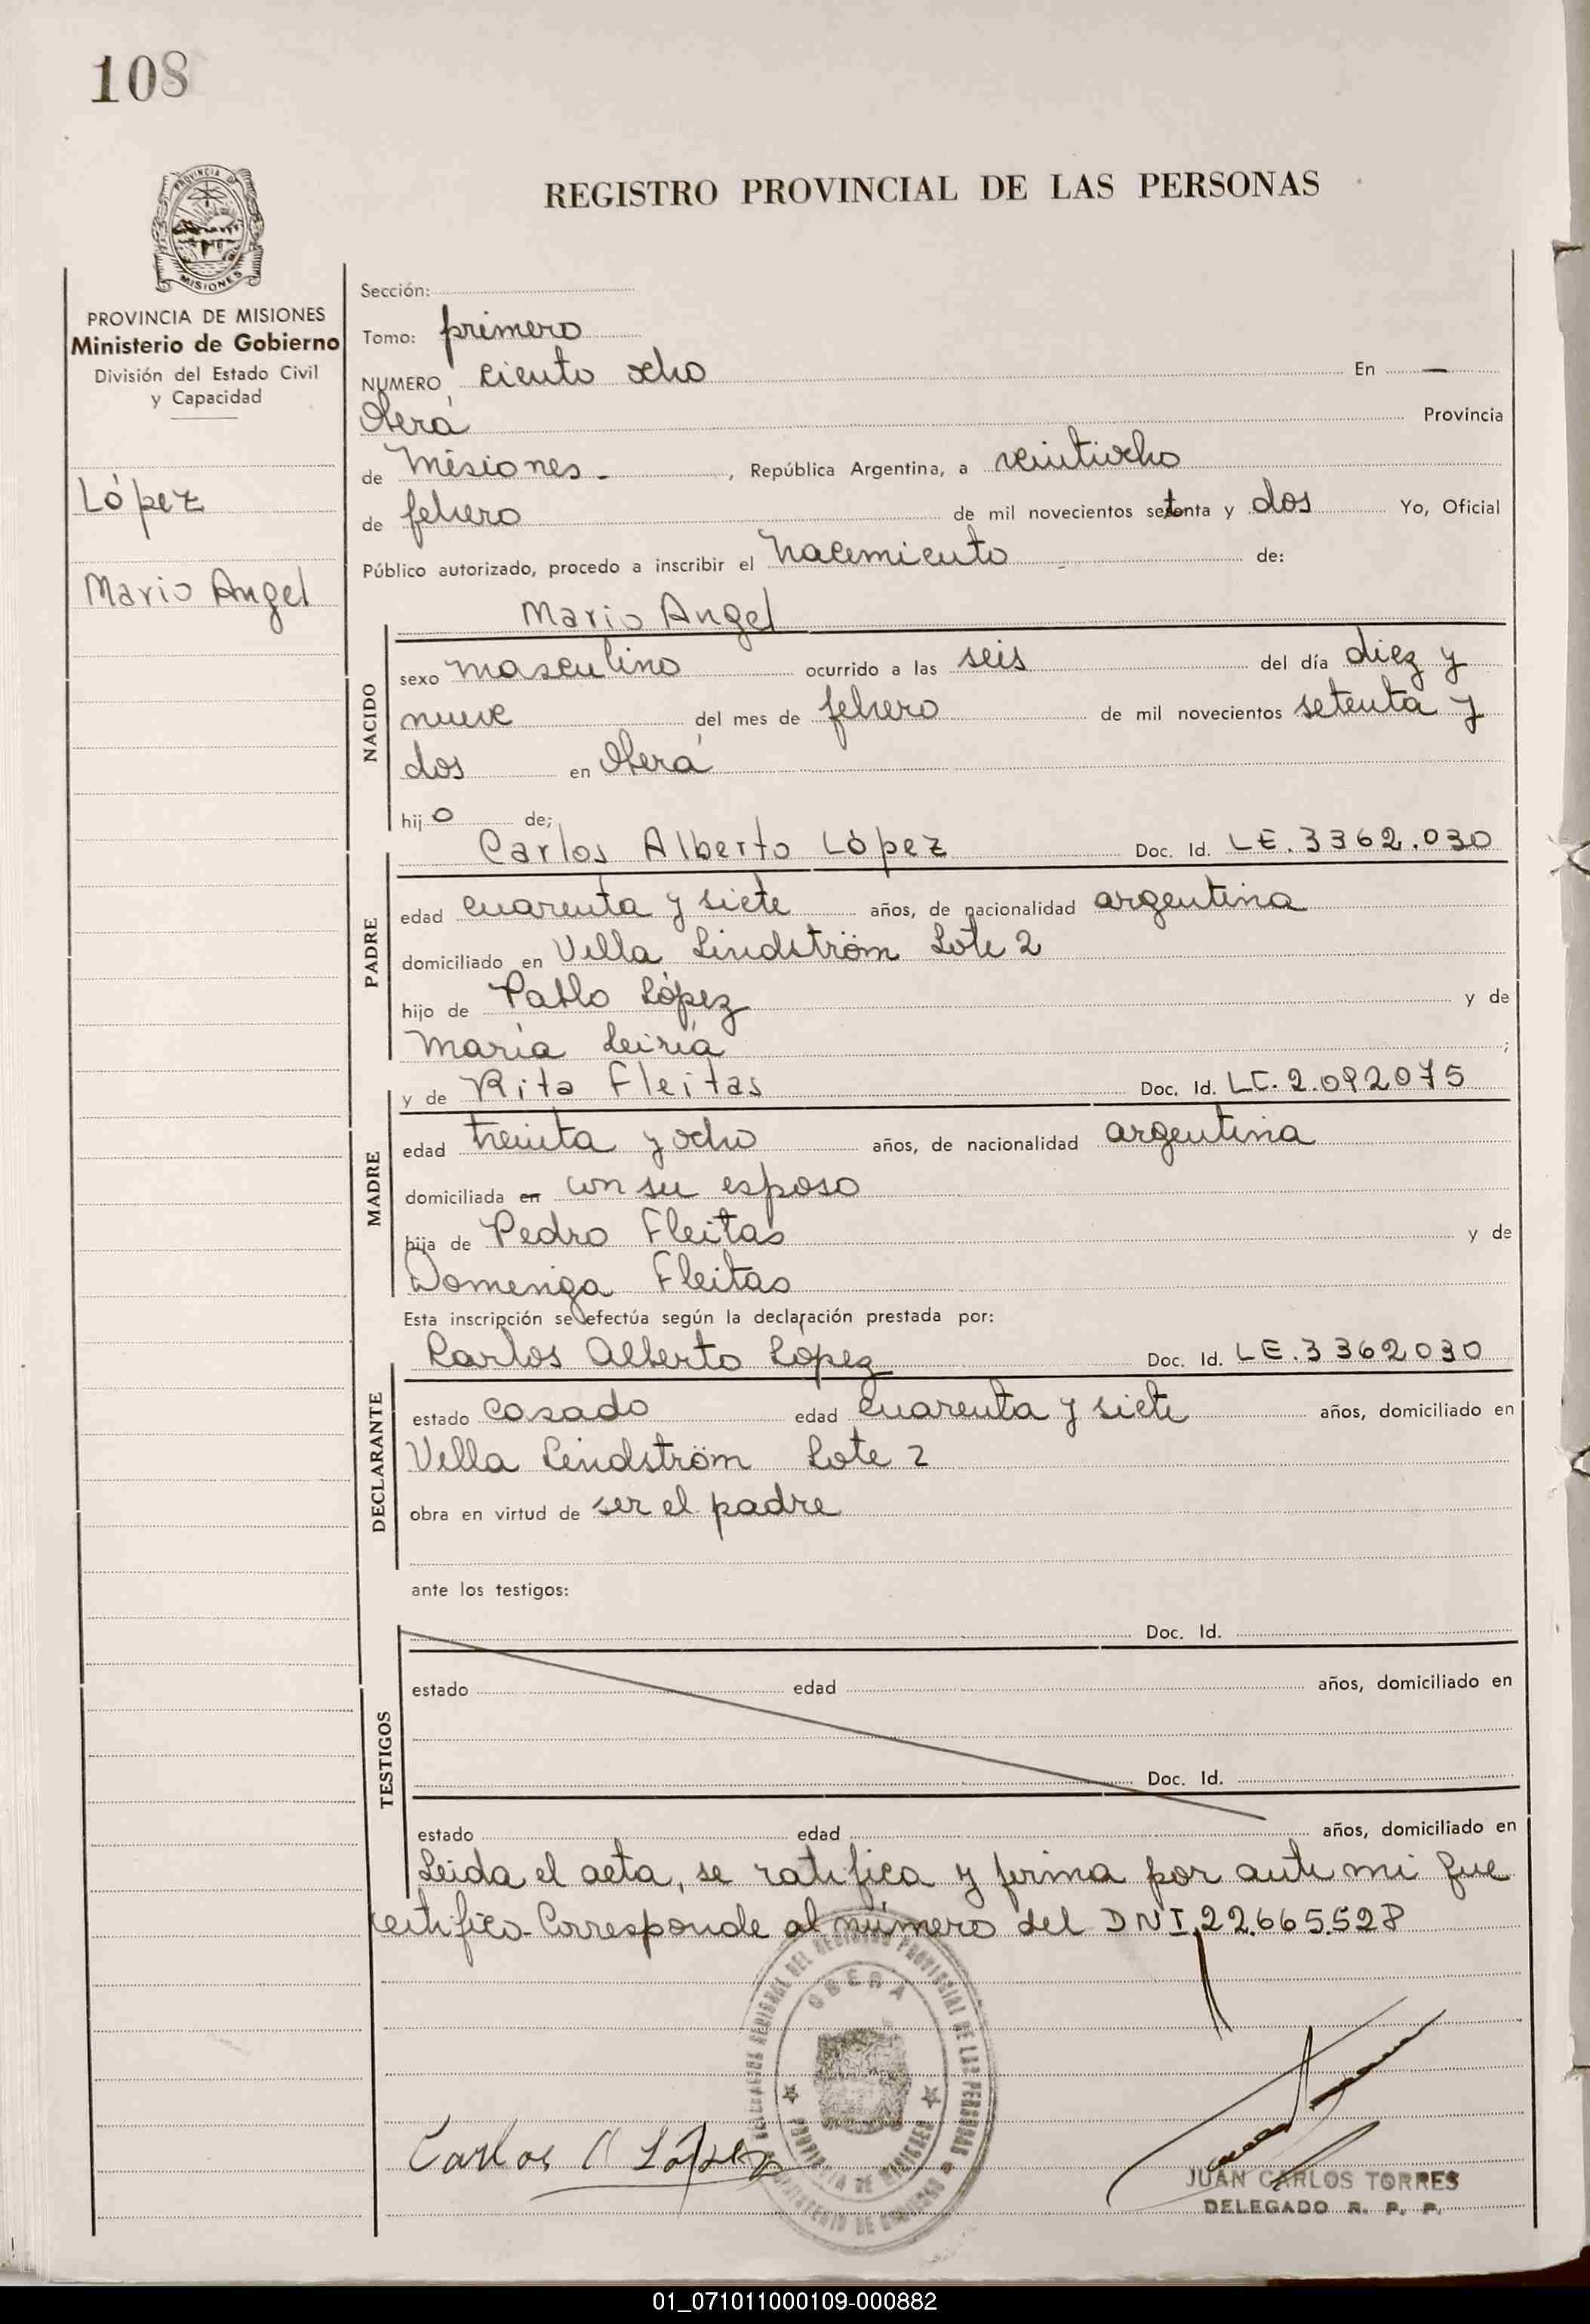 108
PROVINCIA DE MISIONES
REGISTRO PROVINCIAL DE LAS PERSONAS
PROVINCIA DE MISIONES
Ministerio de Gobierno
División del Estado Civil
y Capacidad
López
Mario Angel
Sección:
Tomo: primero
NUMERO ciento ocho En —
Oberá Provincia
de Misiones - , República Argentina, a veintiocho
de febrero de mil novecientos setenta y dos Yo, Oficial
Público autorizado, procedo a inscribir el nacimiento de:
Mario Angel
NACIDO
sexo masculino ocurrido a las seis del día diez y
nueve del mes de febrero de mil novecientos setenta y
dos en Oberá
hijo de;
Carlos Alberto López Doc. Id. LE. 3362.030
PADRE
edad cuarenta y siete años, de nacionalidad argentina
domiciliado en Villa Lindström Lote 2
hijo de Pablo López y de
María Leiría ;
y de Rita Fleitas Doc. Id. LC. 2.092075
MADRE
edad treinta y ocho años, de nacionalidad argentina
domiciliada en con su esposo
hija de Pedro Fleitas y de
Domeniga Fleitas
Esta inscripción se efectúa según la declaración prestada por:
Carlos Alberto López Doc. Id. LE. 3362030
DECLARANTE
estado casado edad cuarenta y siete años, domiciliado en
Villa Lindström Lote 2
obra en virtud de ser el padre
ante los testigos:
Doc. Id.
TESTIGOS
estado edad años, domiciliado en
Doc. Id.
estado edad años, domiciliado en
Leida el acta, se ratifica y firma por ante mi que
certifico. Corresponde al número del DNI 22.665.528
OBERA
PROVINCIA DE MISIONES
Carlos A López
JUAN CARLOS TORRES
DELEGADO R. P. P.
01_071011000109-000882